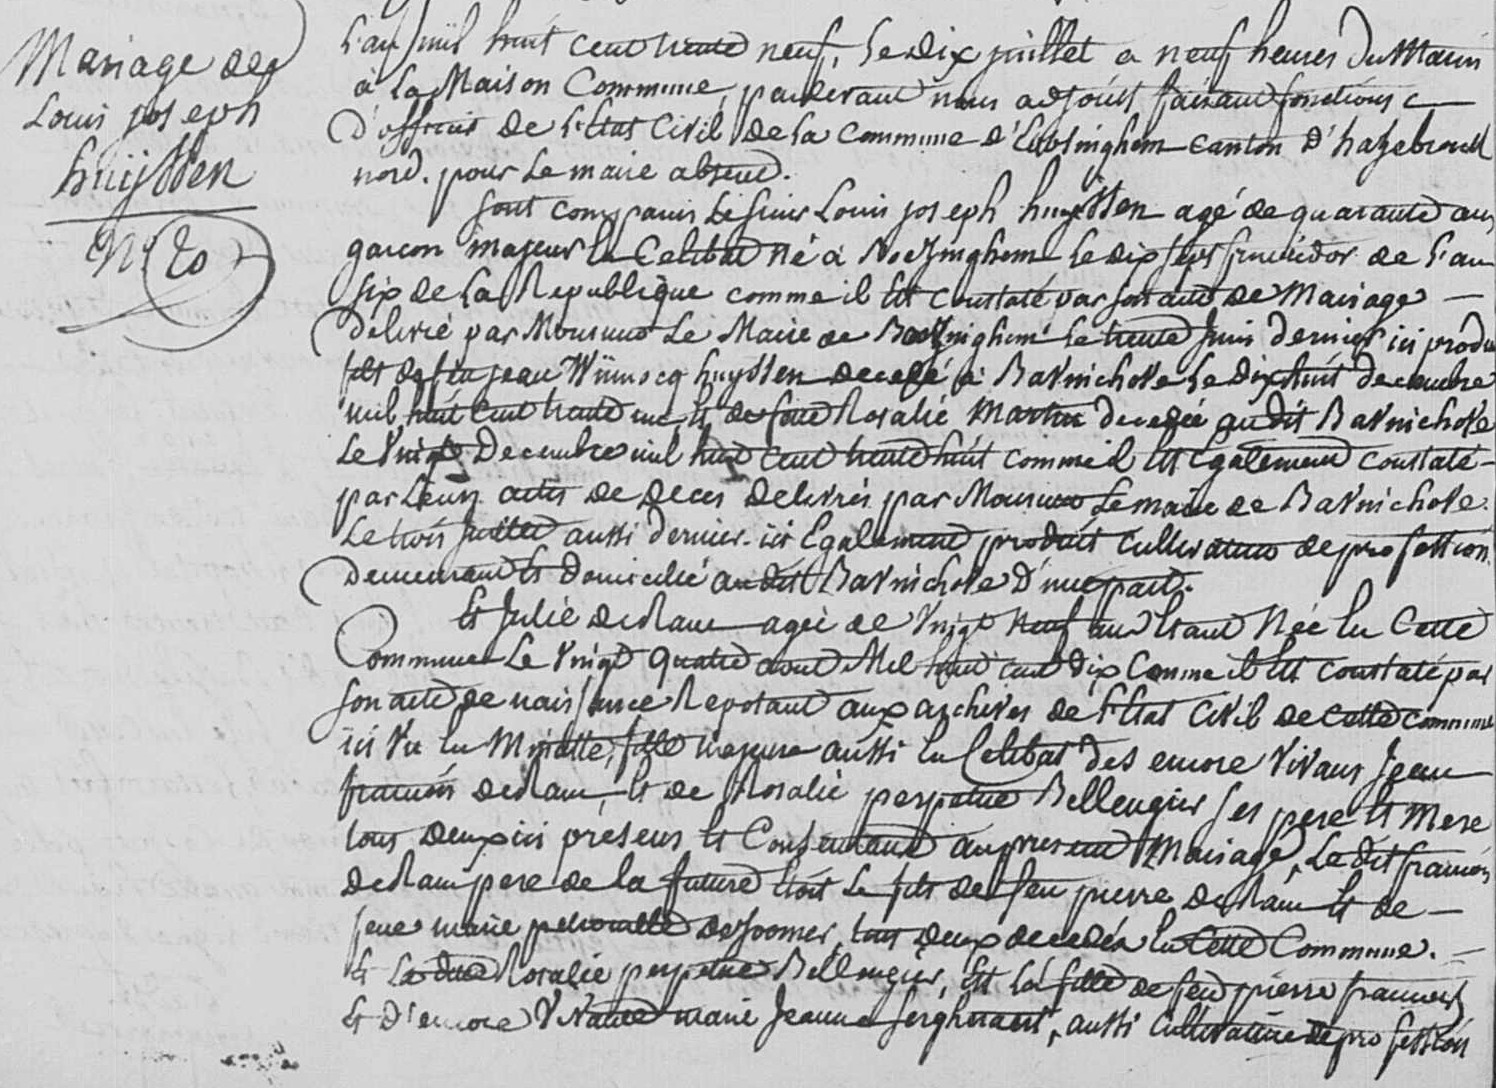 Mariage de
Louis joseph
huyssen
N° 20
L'an mil huit cent trente neuf, Le dix juillet a neuf heures du Matin
à La Maison Commune, pardevant nous adjoint faisant fonctions
D'officier de L'Etat Civil de La Commune d'Ebblinghem canton d'hazebrouck
nord. pour Le maire absent.
Sont comparus Le sieur Louis joseph huyssen agé de quarante ans
garcon majeur en Celibat né à Boezinghem Le dix sept fructidor de L'an
six de La Republique comme il Est constaté par son acte de Mariage
Delivré par Monsieur Le Maire de Boezinghem Le trente Juin dernier ici produit
fils de feu jean Winnocq huyssen decedé à Bavinchove Le dix huit decembre
mil huit cent trente un, Et de feue Rosalie Martin decedée au dit Bavinchove
Le vingt Decembre mil huit cent trente huit comme il Est Egalement constaté
par Leurs actes de deces delivrés par Monsieur Le maire de Bavinchove
Le trois Juillet aussi dernier. ici Egalement produits cultivateur de profession
Demeurant Et Domicilié au dit Bavinchove D'une part.
Et Julie deRam agée de Vingt Neuf ans Etant Née En Cette
Commune Le Vingt quatre aout Mil huit cent dix Comme il Est constaté par
son acte de naissance Reposant aux archives de L'Etat Civil de cette commune
ici Vu En Minutte, fille majeure aussi En Celibat des encore Vivans Jean
francois deRam, Et de Rosalie perpetue Bellengier ses pere Et Mere
tous deux ici présens Et Consentans au present Mariage, Le dit francois
deRam pere de la future Etoit Le fils de feu pierre deRam Et de
feue marie petronille deJoomer, tous deux decedés En Cette Commune.
Et La dite Rosalie perpetue Bellengier, Est La fille de feu pierre francois
Et D'encore Vivante marie Jeanne, aussi cultivatrice de profession